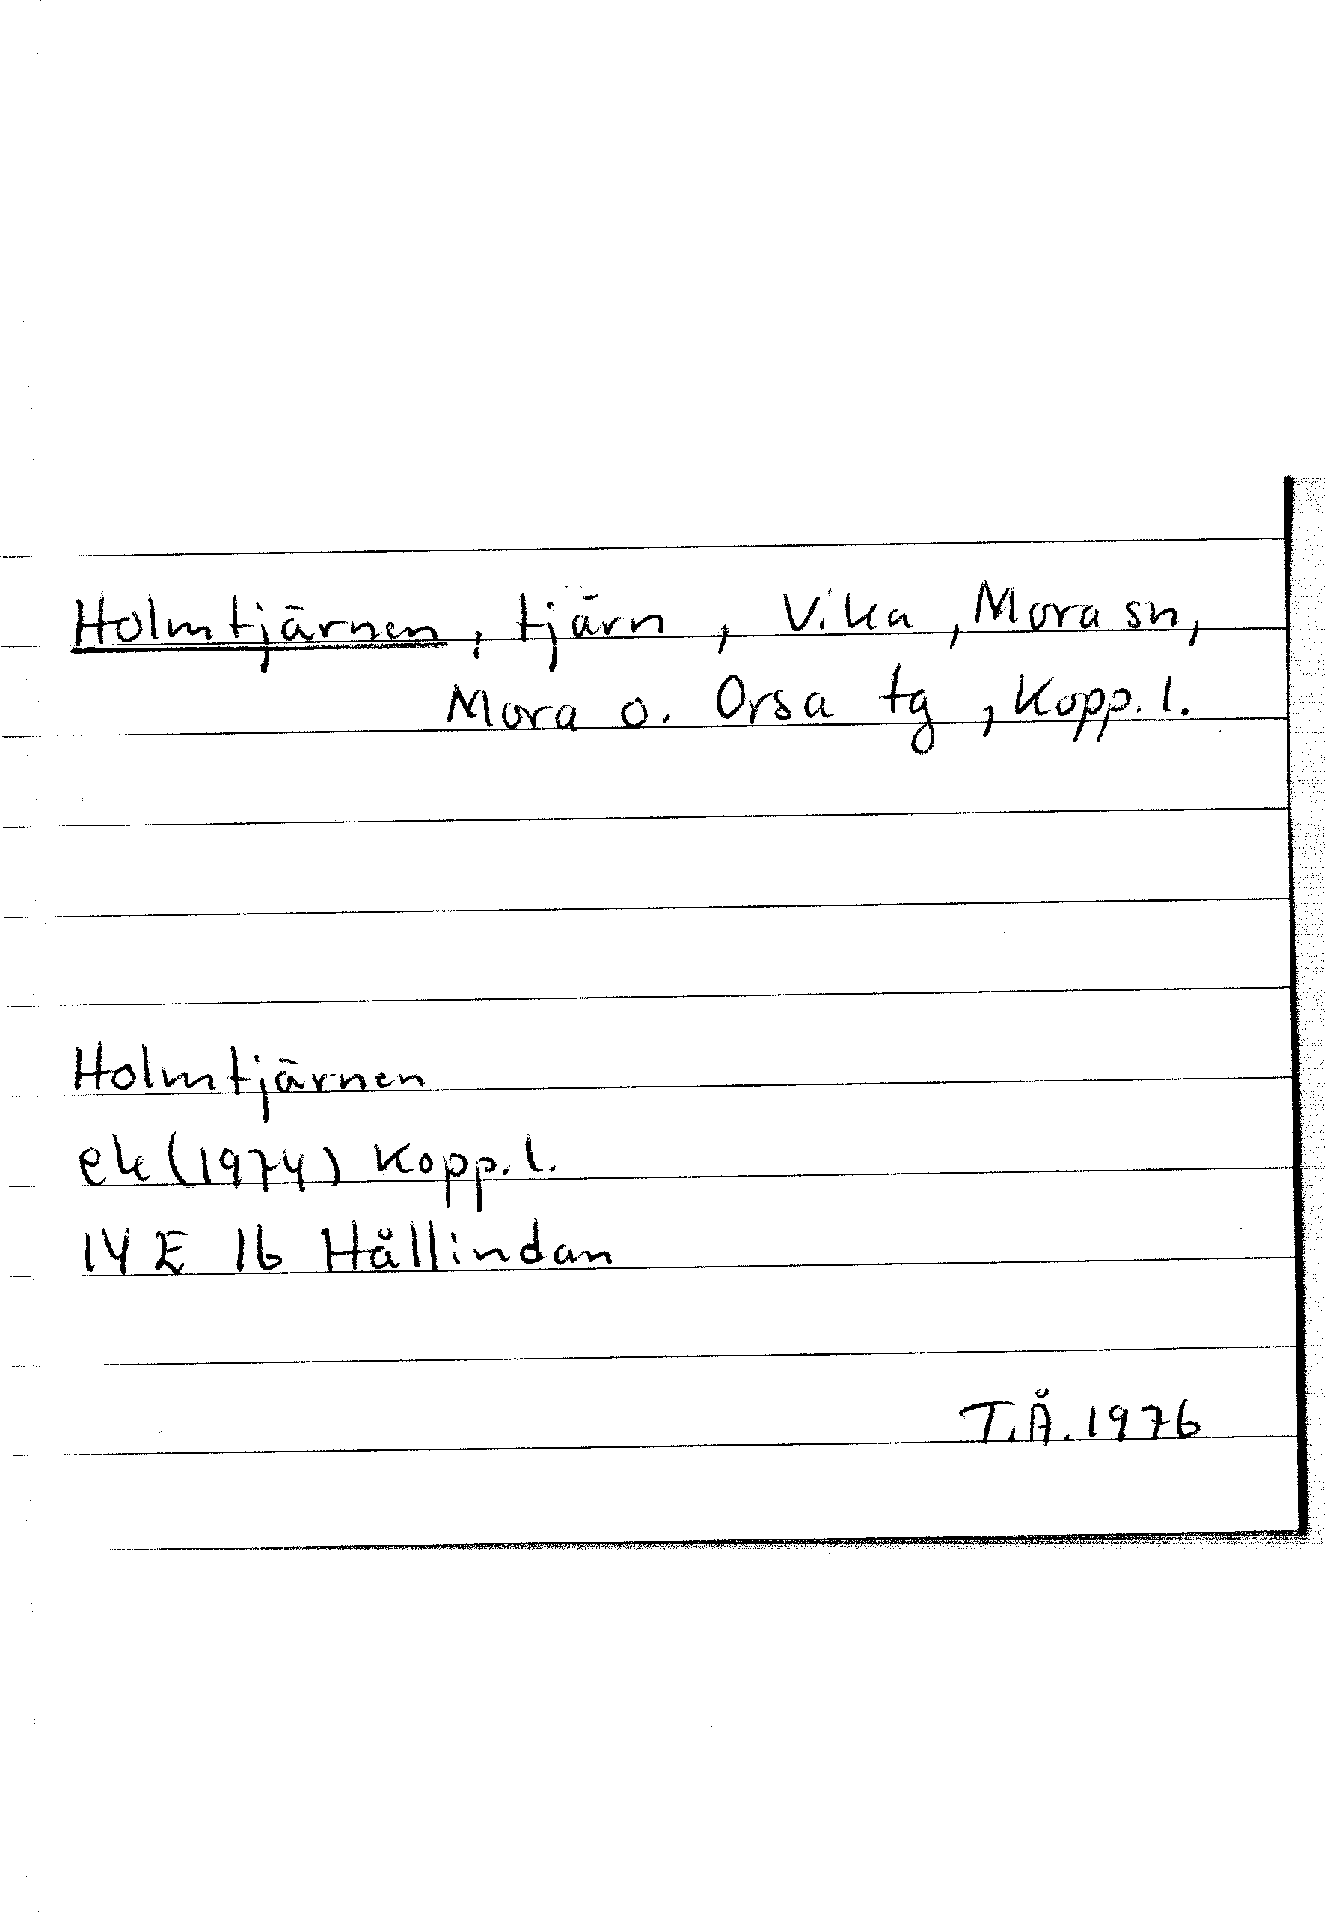 Holmtjärnen, tjärn, Vika, Mora sn,
Mora o. Orsa tg, Kopp. l.
Holmtjärnen
ek (1974) Kopp. l.
14 E 1b Hållindan
T.Å. 1976